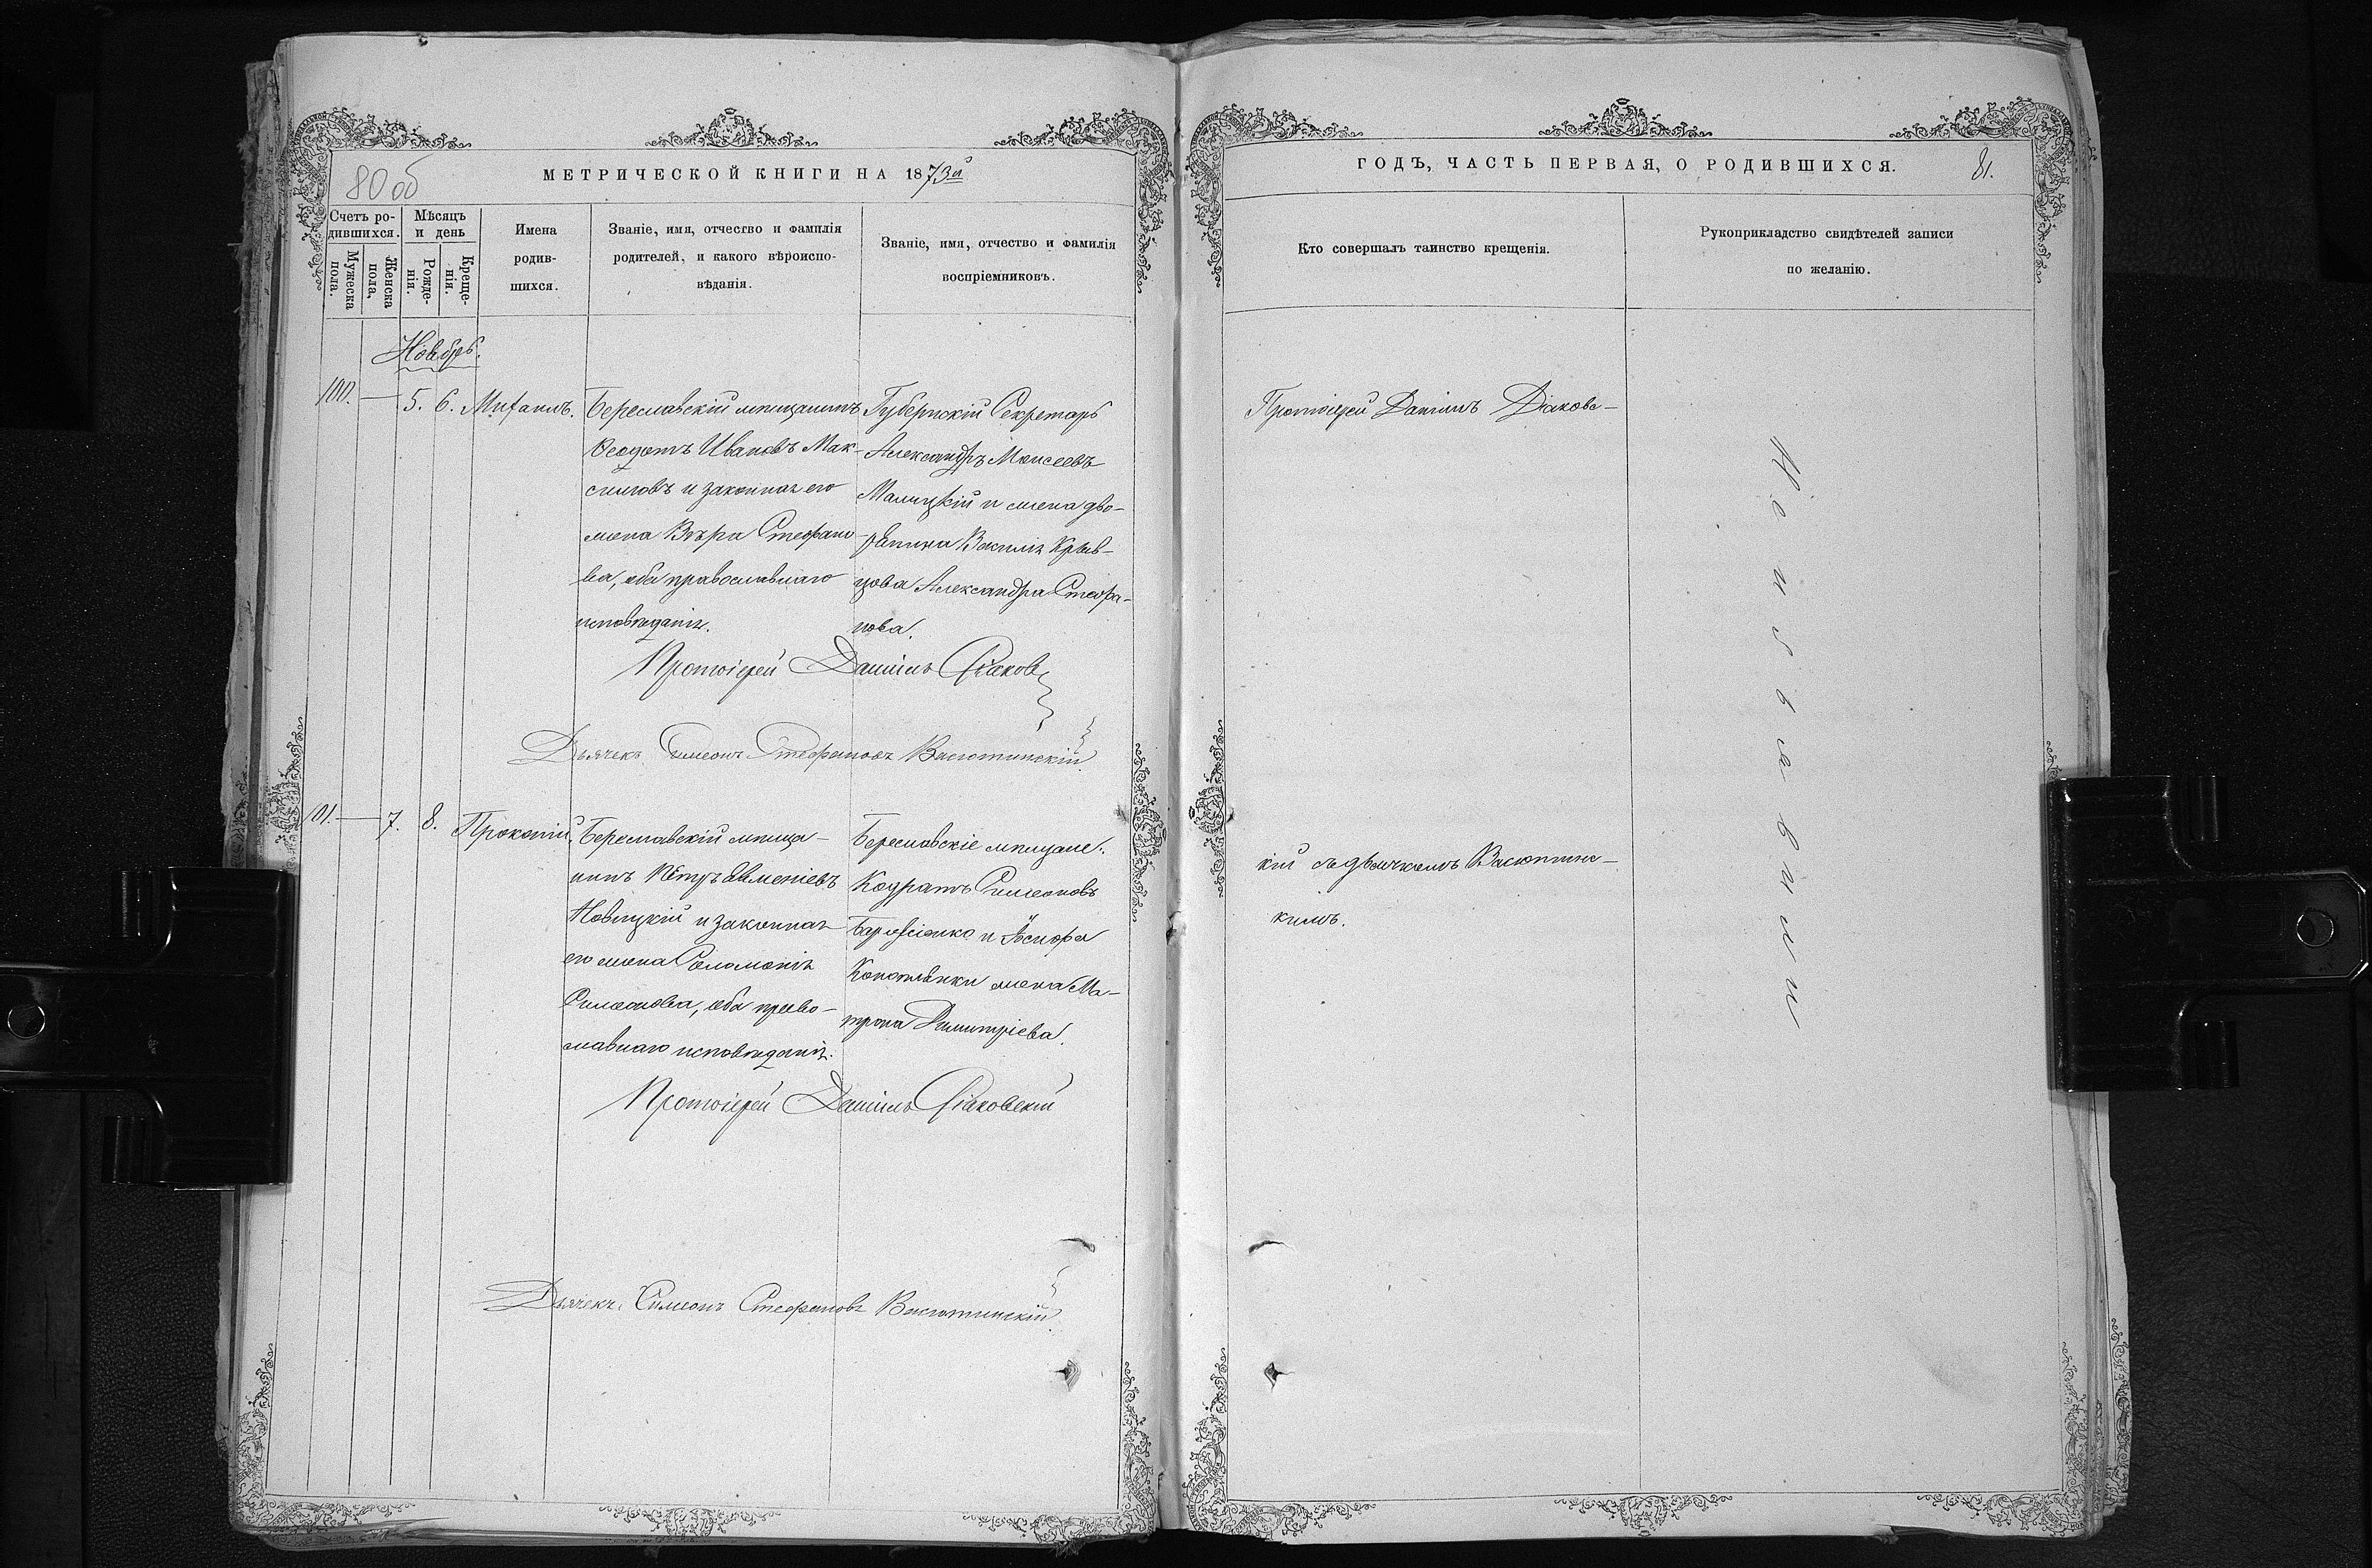 МЕТРИЧЕСКОЙ КНИГИ НА 1873й
80 об
Счетъ ро-
дившихся.
Мужеска
пола.
Женска
пола,
Мѣсяцъ
и день
Рожде-
нія.
Креще-
нія.
Имена
родив-
шихся.
Званіе, имя, отчество и фамилія
родителей, и какого вѣроиспо-
вѣданія.
Званіе, имя, отчество и фамилія
воспріемниковъ.
Ноябрь.
100. — 5. 6. Михаилъ.
Береславскій мѣщанинъ
Ѳеодотъ Ивановъ Мак-
симовъ и законная его
жена Вѣра Стефано-
ва, оба православнаго
исповѣданія.
Губернскій Секретарь
Александръ Моисеевъ
Малицкій и жена дво-
рянина Василія Крив-
цова Александра Стефа-
нова.
Протоіерей Даніилъ Діаков
Дьячекъ Симеонъ Стефановъ Васютинскій
101. — 7. 8. Прокопій.
Береславскій мѣща-
нинъ Петръ Евменіевъ
Новицкій и законная
его жена Соломонія
Симеонова, оба право-
славнаго исповѣданія.
Береславскіе мѣщане:
Кодратъ Симеоновъ
и Іосифа
жена Ма-
трона Димитріева.
Протоіерей Даніилъ Діаковскій
Дьячекъ Симеонъ Стефановъ Васютинскій
ГОДЪ, ЧАСТЬ ПЕРВАЯ, О РОДИВШИХСЯ.
81.
Кто совершалъ таинство крещенія.
Рукоприкладство свидѣтелей записи
по желанію.
Протоіерей Даніилъ Діаковс-
кій съ дьячкомъ Васютинс-
кимъ.